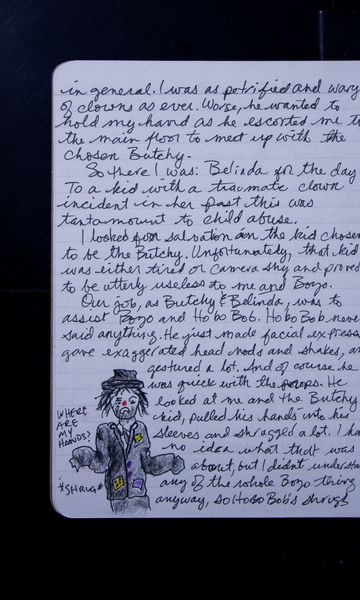 in general. I was as petrified and wary
of clowns as ever. Worse, he wanted to
hold my hand as he escorted me to
the main floor to meet up with the
chosen Butchy.
So there I was: Belinda for the day
To a kid with a traumatic clown
incident in her past this was
tantamount to child abuse.
I looked for salvation in the kid chosen
to be the Butchy. Unfortunately, that kid
was either tired or camera shy and proved
to be utterly useless to me and Bozo.
Our job, as Butchy & Belinda, was to
assist Bozo and Hobo Bob. Hobo Bob never
said anything. He just made facial express
gave exaggerated head nods and shakes, an
gestured a lot. And of course he
was quick with the props. He
looked at me and the Butchy
kid, pulled his hands into his
sleeves and shrugged a lot. I ha
no idea what that was
about, but I didn't understa
any of the whole Bozo thing
anyway, so Hobo Bob's shrugs
WHERE
ARE
MY
HANDS?
*SHRUG*